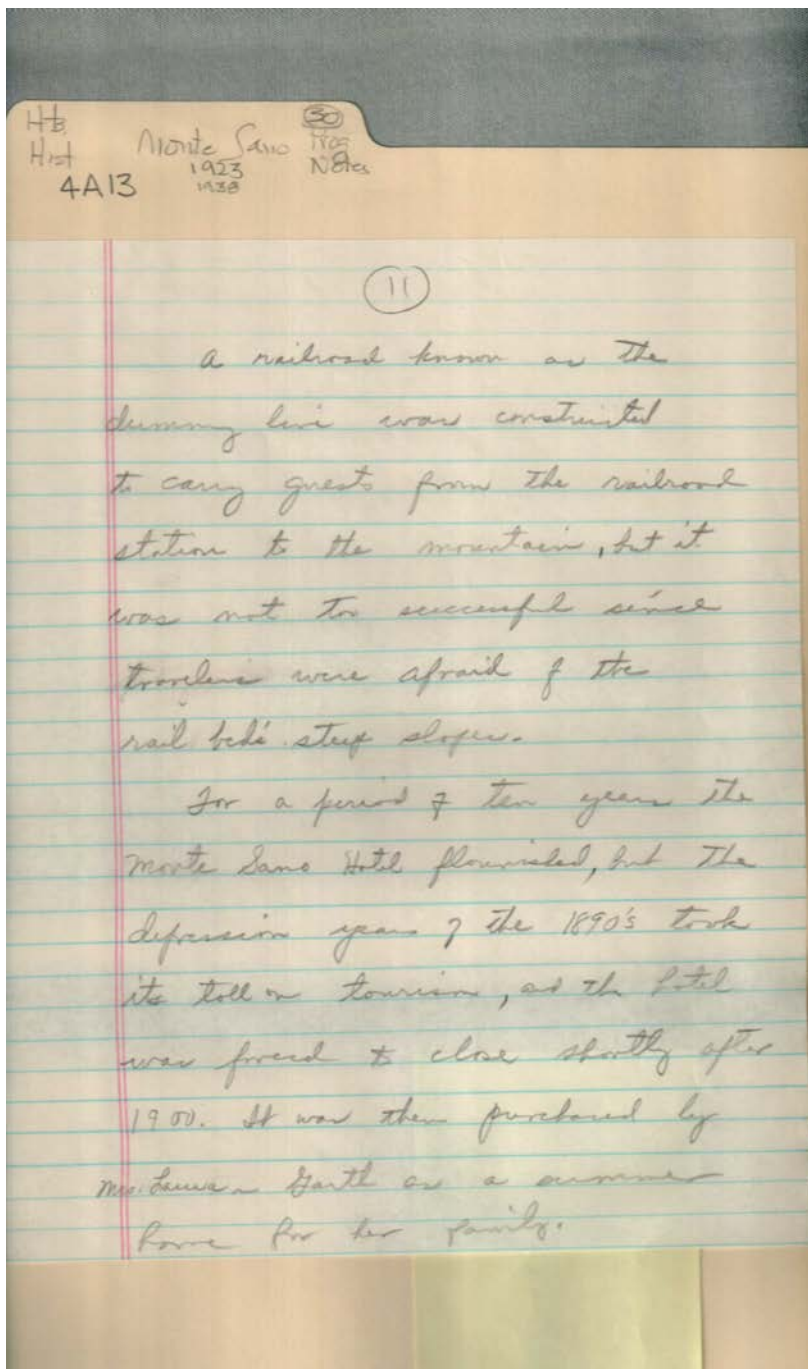 Htb.
Hist
4A13
Monte Sano
1923
1938
30
Notes
11
A railroad known as the
dummy line was constructed
to carry guests from the railroad
station to the mountain, but it
was not too successful since
travelers were afraid of the
rail bed's steep slopes.
For a period of ten years the
Monte Sano Hotel flourished, but the
depression years of the 1890's took
its toll on tourism, and the hotel
was forced to close shortly after
1900. It was then purchased by
Mrs. Garth as a summer
home for her family.